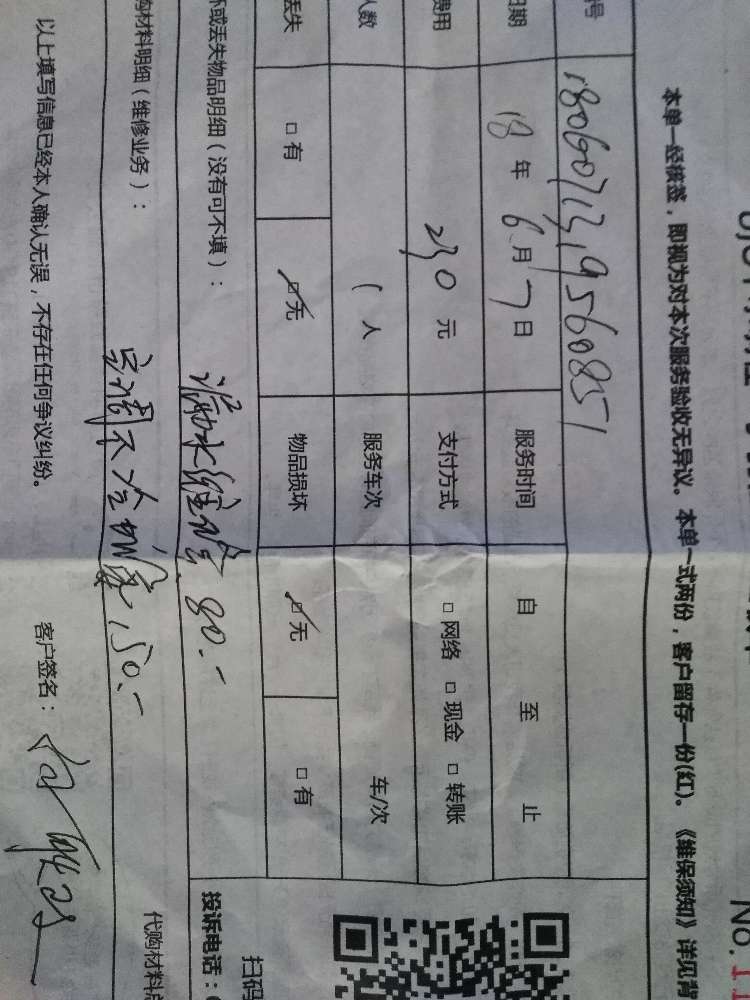 No.1
本单一经核签，即视为对本次服务验收无异议。本单一式两份，客户留存一份(红)。《维保须知》详见背
号 180607131956085 1
日期 18 年 6 月 7 日 服务时间 自 至 止
费用 230 元 支付方式 □ 网络 □ 现金 □ 转账
人数 1 人 服务车次 车/次
丢失 □ 有 ☑ 无 物品损坏 ☑ 无 □ 有
坏或丢失物品明细（没有可不填）： 漏水维修 80.-
购材料明细（维修业务）： 空调不冷 150.-
投诉电话：
扫码
代购材料
以上填写信息已经本人确认无误，不存在任何争议纠纷。 客户签名：